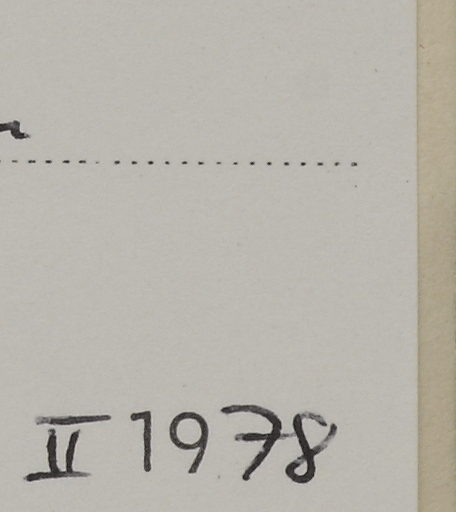 II 1978